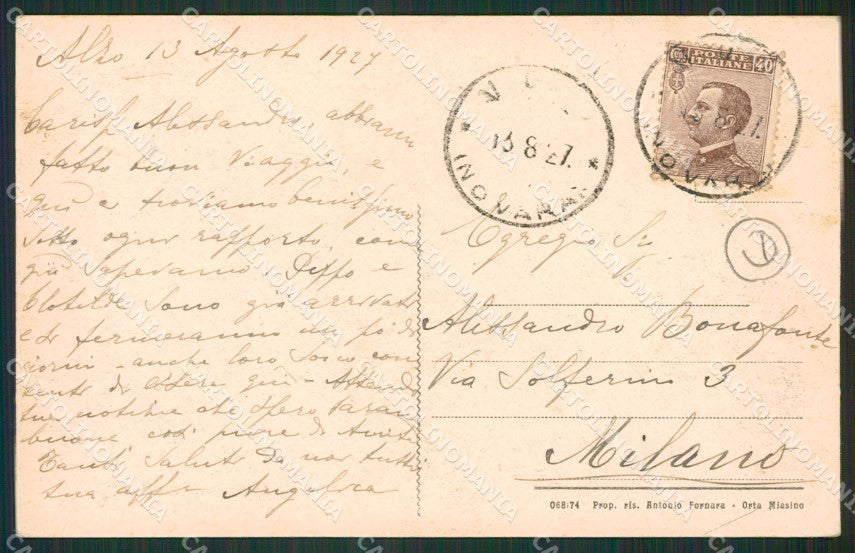 Alzo 13 Agosto 1927
Carisf. Alessandro, abbiamo
fatto buon Viaggio, e
qui ci troviamo
sotto ogni rapporto, come
già sapevamo Pippo e
Clotilde sono già arrivati
e si fermeranno un po' di
giorni - anche loro sono con
tenti di essere qui - Attendo
tue notizie che spero saran
buone così pure di
Tanti saluti da noi tutti
tua aff. Angelica
13.8.27.
(NOVARA)
POSTE
ITALIANE
40
(NOVARA)
Egregio Sig.
Alessandro Bonafonte
Via Solferino 3
Milano
068:74 Prop. ris. Antonio Fornara - Orta Miasino
CARTOLINOMANIA